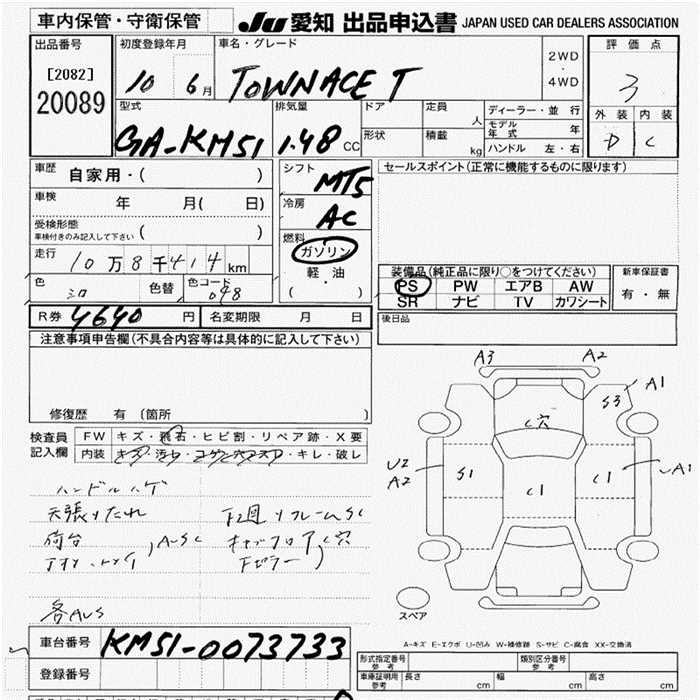 車内保管・守衛保管 Ju 愛知 出品申込書 JAPAN USED CAR DEALERS ASSOCIATION
出品番号 初度登録年月 車名・グレード 2WD ・ 4WD 評価点
[2082] 20089 10 6月 TOWNACE T 3
型式 排気量 ドア 定員 人 ディーラー・並行 外装 内装
GA-KM51 1.48 CC 形状 積載 kg モデル年式 年 D C
ハンドル 左・右
車歴 自家用・( ) シフト MT5 セールスポイント(正常に機能するものに限ります)
車検 年 月( 日) 冷房 AC
受検形態 車検付きのみ記入して下さい ( ) 燃料 ガソリン
走行 10万8千414km 軽・油 装備品(純正品に限り○をつけてください) 新車保証書
色 シロ 色替 色コード 048 ( ) PS PW エアB AW 有・無
SR ナビ TV カワシート
R券 4640 円 名変期限 月 日 後日品
注意事項申告欄(不具合内容等は具体的に記入して下さい)
修復歴 有 〔箇所 〕
検査員記入欄 FW キズ・飛石・ヒビ割・リペア跡・X要
内装 キズ・汚れ・コゲ・穴・スレ・キレ・破レ
ハンドルハゲ
天張りたれ 下廻リフレームSC
荷台 A-SC キャブフロア C穴
下ピラー
各AUS
A3 A2
A1
S3
C穴
U2 A2 S1 C1 C1 A1
スペア
A-キズ E-エクボ U-凹み W-補修跡 S-サビ C-腐食 XX-交換済
車台番号 KM51-0073733
登録番号
形式指定番号 参考 類別区分番号 参考
車庫証明用 参考 長さ cm 幅 cm 高さ cm